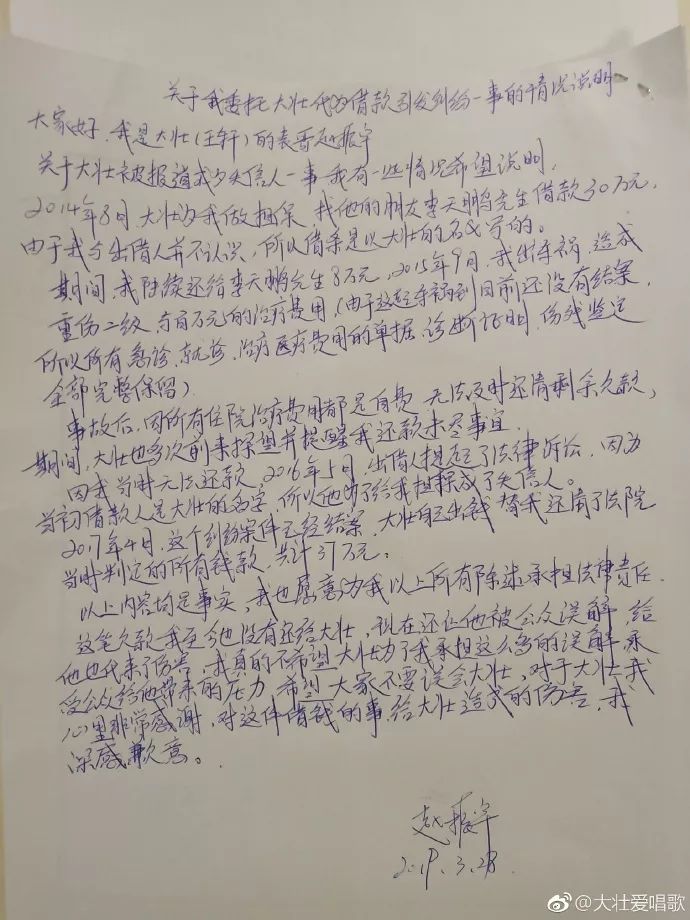 关于我委托大壮代为借款引发纠纷一事的情况说明
大家好，我是大壮（王轩）的表哥赵振宇
关于大壮被报道成为失信人一事我有一些情况希望说明。
2014年8月，大壮为我做担保，找他的朋友李天鹏先生借款30万元，
由于我与出借人并不认识，所以借条是以大壮的名义写的。
期间，我陆续还给李天鹏先生8万元，2015年9月，我出车祸，造成
重伤二级，与百万元的治疗费用（由于这起车祸到目前还没有结案，
所以所有急诊、就诊、治疗医疗费用的单据、诊断证明、伤残鉴定
全部完整保留）
事故后，因所有住院治疗费用都是自费，无法及时还清剩余欠款，
期间，大壮也多次前来探望并提醒我还款未尽事宜。
因我当时无法还款，2016年5月，出借人提起了法律诉讼，因为
当初借款人是大壮的名字，所以他为了给我担保成了失信人。
2017年4月，这个纠纷案件已经结案，大壮自己出钱替我还清了法院
当时判定的所有钱款，共计37万元。
以上内容均是事实，我也愿意为我以上所有陈述承担法律责任。
这笔欠款我至今也没有还给大壮，现在还让他被公众误解，给
他也带来了伤害，我真的不希望大壮为了我承担这么多的误解，承
受公众给他带来的压力，希望大家不要误会大壮，对于大壮我
心里非常感谢，对这件借钱的事给大壮造成的伤害，我
深感歉意。
赵振宇
2019.3.28
@大壮爱唱歌